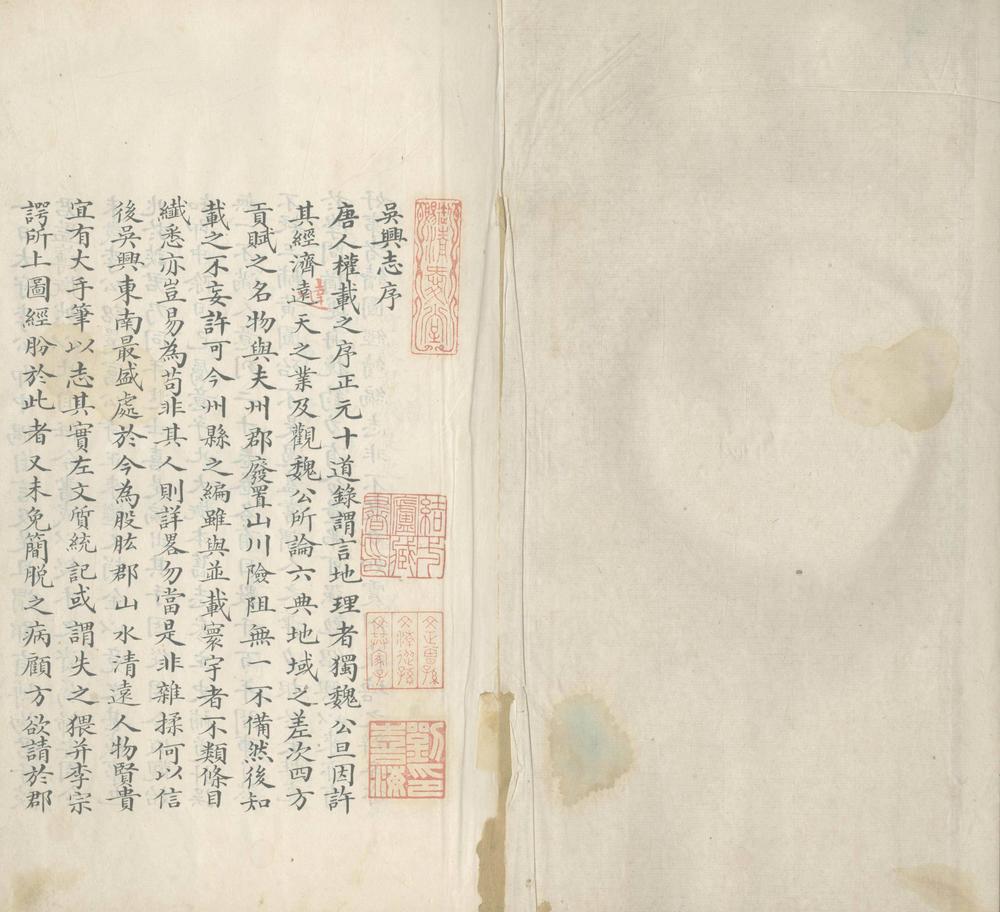 吳興志序
唐人權載之序正元十道錄謂言地理者獨魏公旦因許
其經濟遠天之業及觀魏公所論六典地域之差次四方
貢賦之名物與夫州郡廢置山川險阻無一不備然後知
載之不妄許可今州縣之編雖與並載寰宇者不類條目
纖悉亦豈易為苟非其人則詳畧勿當是非雜揉何以信
後吳興東南最盛處於今為股肱郡山水清遠人物賢貴
宜有大手筆以志其實左文質統記或謂失之猥并李宗
諤所上圖經盼於此者又未免簡脫之病顧方欲請於郡
御賜清愛堂
結一廬藏書印
文正曾孫文清從孫文恭冢子
劉印喜海